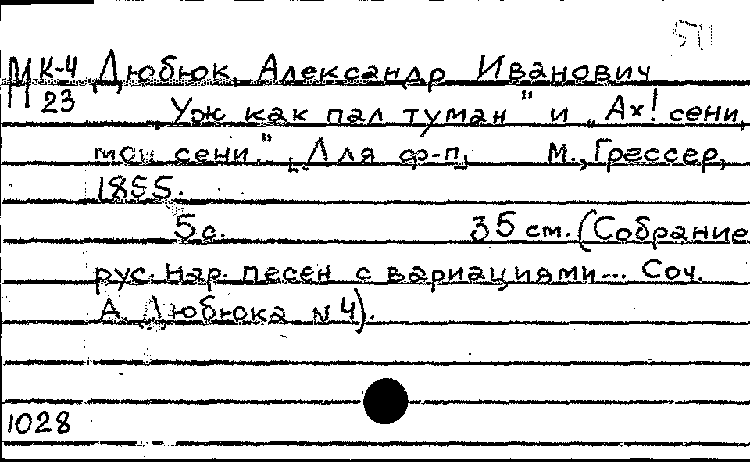 М К-4 Дюбюк, Александр Иванович
23 „Уж как пал туман" и „Ах! сени,
мои сени." [Для ф-п]. М., Грессер,
1855.
5 с. 35 см. (Собрание
рус. нар. песен с вариациями... Соч.
А. Дюбюка №4).
1028